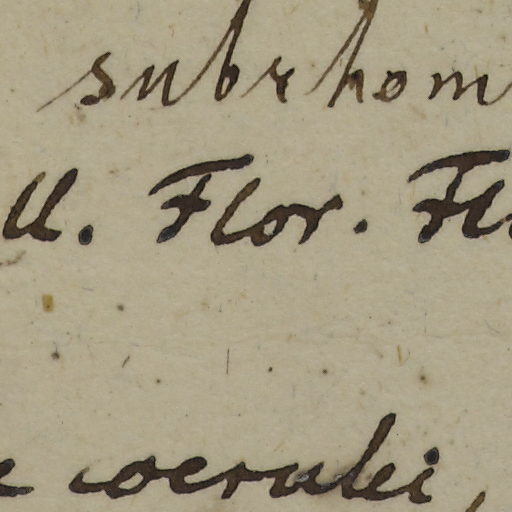 subrhom
ll. Flor. Fl
e coerulei,